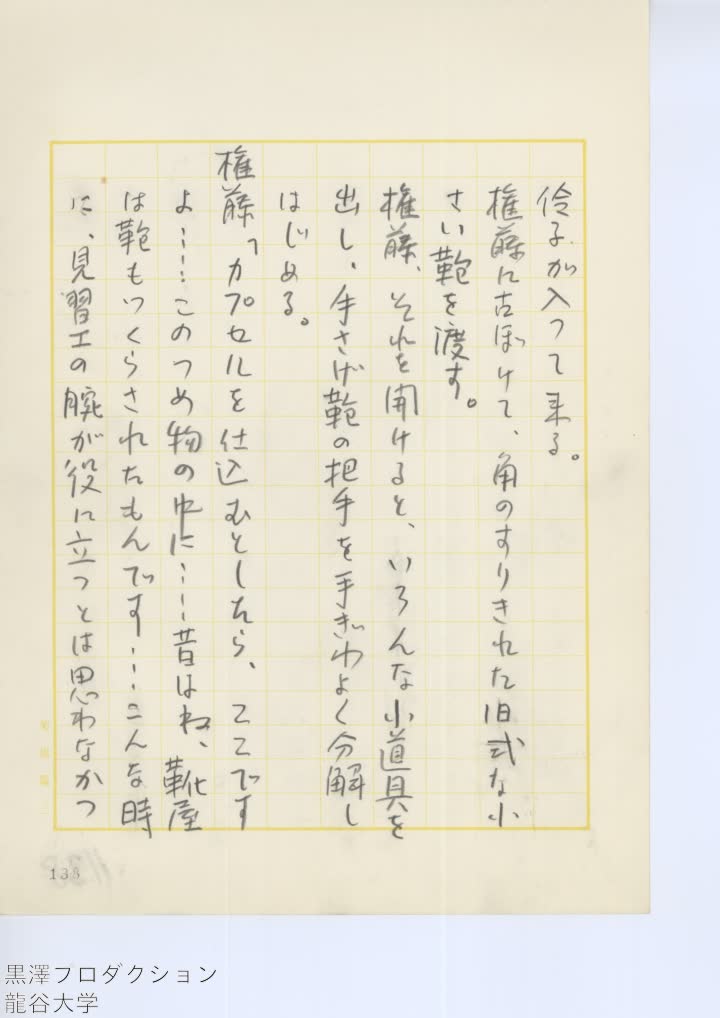 伶子が入つて来る。
権藤に古ぼけて、角のすりきれた旧式な小
さい鞄を渡す。
権藤、それを開けると、いろんな小道具を
出し、手さげ鞄の把手を手ぎわよく分解し
はじめる。
権藤「カプセルを仕込むとしたら、ここです
よ……このつめ物の中に……昔はね、靴屋
は鞄もつくらされたもんです……こんな時
に、見習工の腕が役に立つとは思わなかつ
138
黒澤プロダクション
龍谷大学